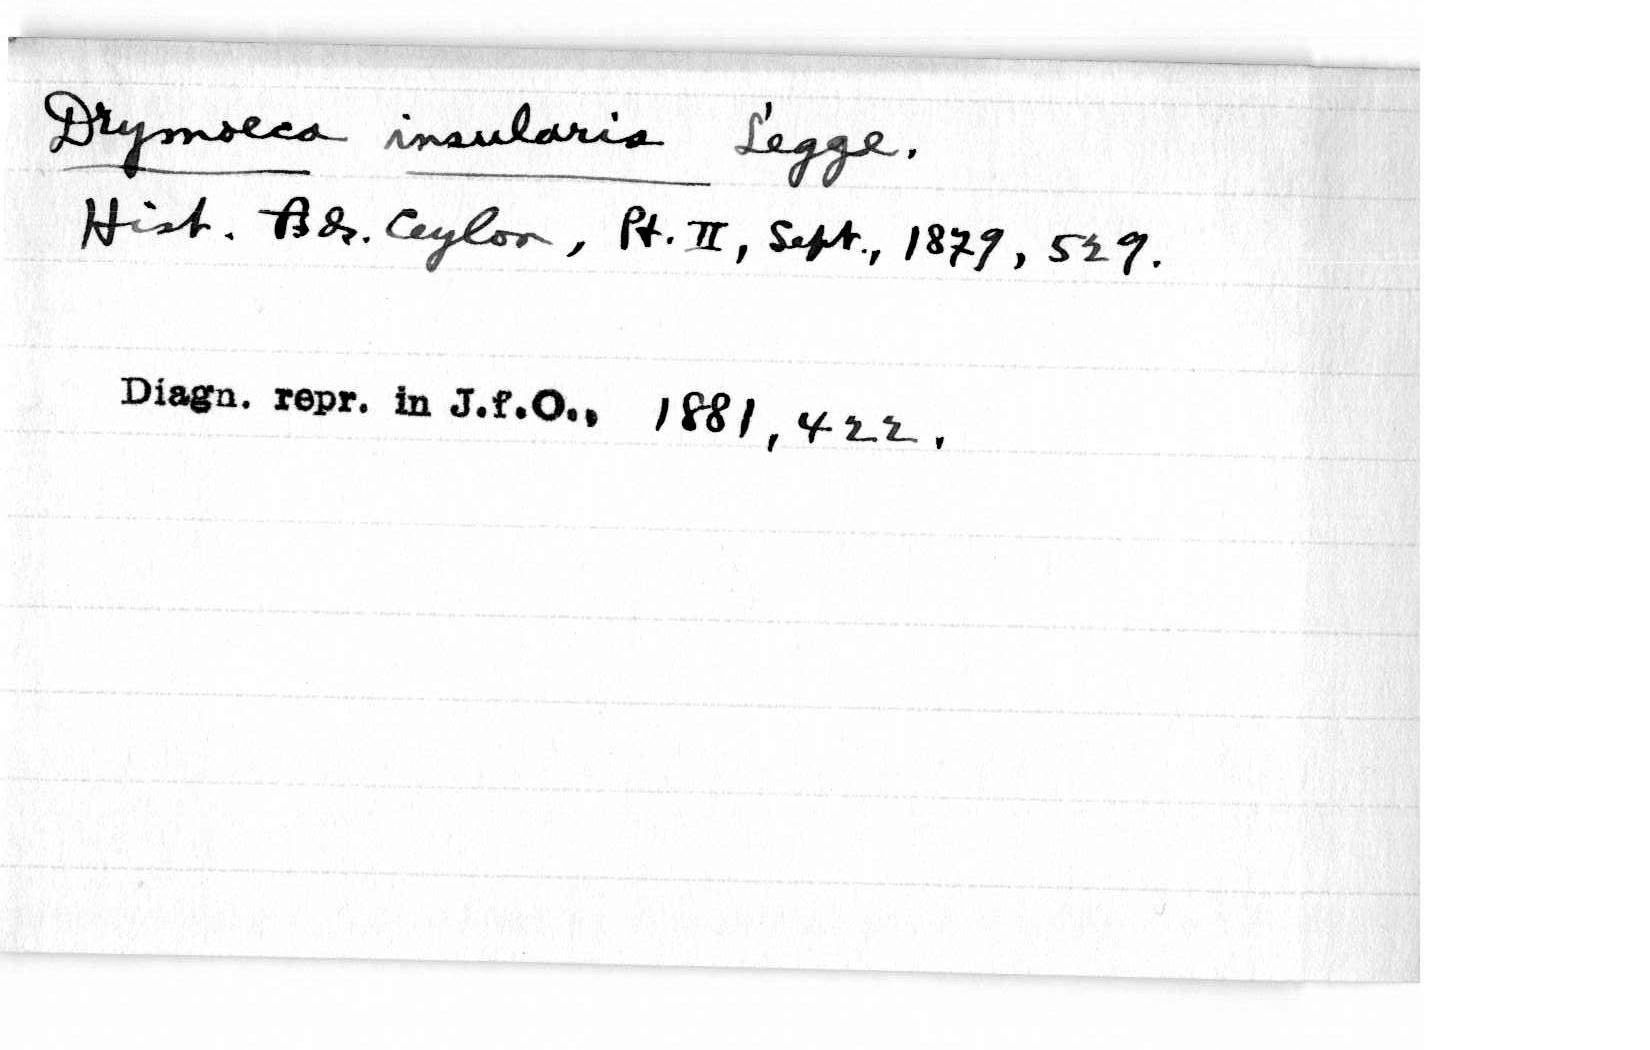 Drymoeca insularis Legge.
Hist. Bds. Ceylon, Pt. II, Sept., 1879, 529.
Diagn. repr. in J.f.O., 1881, 422.